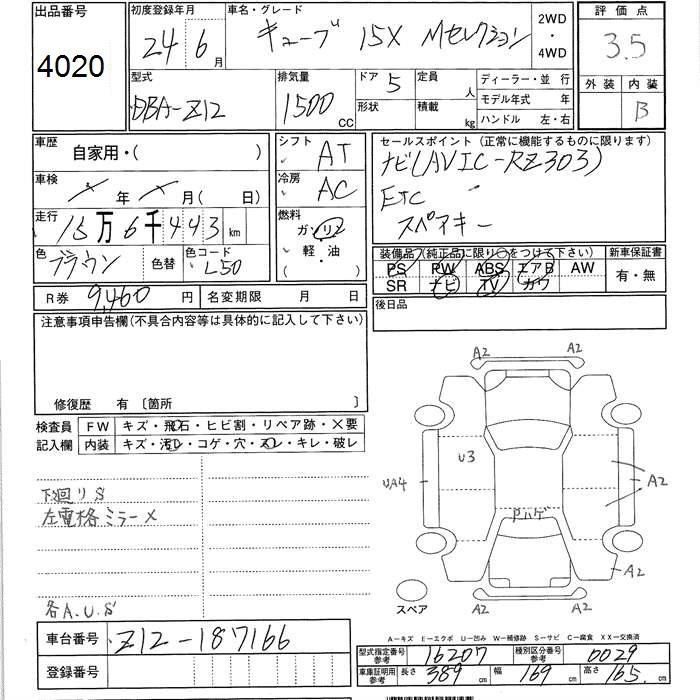 出品番号 4020
初度登録年月 24 6月
車名・グレード キューブ 15X Mセレクション
2WD・4WD
評価点 3.5
外装 内装 B
型式 DBA-Z12
排気量 1500 CC
ドア 5 形状
定員 人 積載 kg
ディーラー・並行
モデル年式 年
ハンドル 左・右
車歴 自家用・( )
車検 年 月( 日)
走行 15万6千443 km
色 ブラウン 色替 色コード L50
シフト AT
冷房 AC
燃料 ガソリン 軽・油
セールスポイント(正常に機能するものに限ります)
ナビ(AVIC-RZ303)
ETC
スペアキー
装備品(純正品に限り○をつけて下さい) 新車保証書
PS PW ABS エアB AW 有・無
SR ナビ TV カワ
R券 9,460 円 名変期限 月 日
後日品
注意事項申告欄(不具合内容等は具体的に記入して下さい)
修復歴 有 〔箇所 〕
検査員 FW キズ・飛石・ヒビ割・リペア跡・X要
記入欄 内装 キズ・汚レ・コゲ・穴・スレ・キレ・破レ
下廻リS
左電格ミラーX
各A.U.S
A2 A2
U3
UA4
A2
Pハゲ
A2
A2
スペア
A-キズ E-エクボ U-凹み W-補修跡 S-サビ C-腐食 XX-交換済
車台番号 Z12-187166
登録番号
型式指定番号参考 16207 種別区分番号参考 0029
車庫証明用参考 長さ 389 cm 幅 169 cm 高さ 165 cm